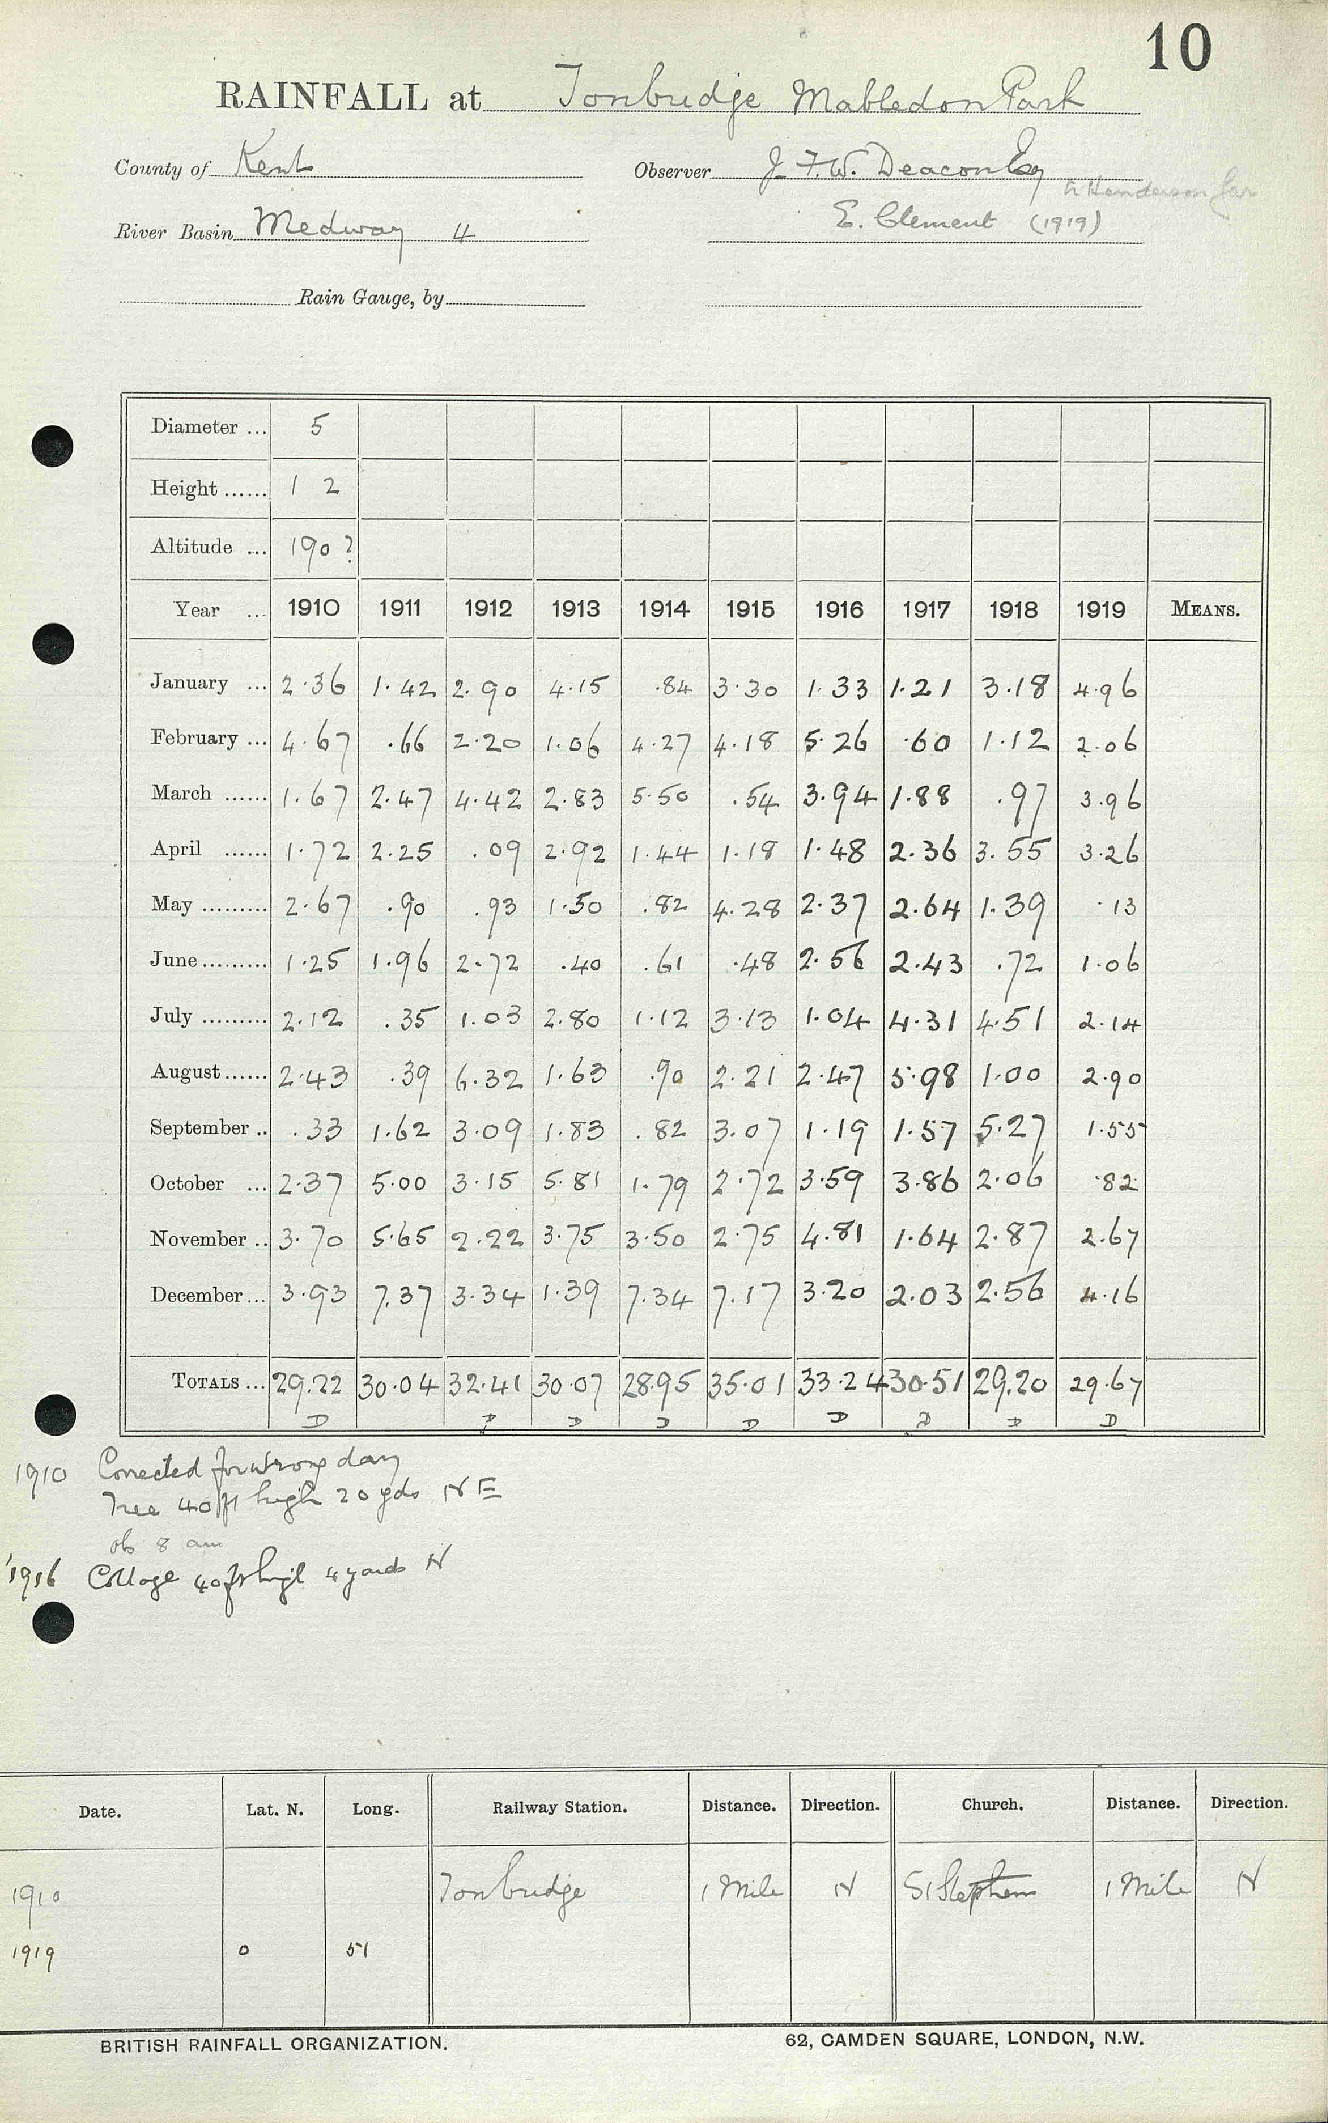 10
RAINFALL at Tonbridge Mabledon Park
County of Kent Observer J. F. W. Deacon Esq
A Henderson Gar
River Basin Medway 4 E. Clement (1919)
Rain Gauge, by
Diameter ... 5
Height ...... 1 2
Altitude ... 190 ?
Year ... 1910 1911 1912 1913 1914 1915 1916 1917 1918 1919 MEANS.
January ... 2.36 1.42 2.90 4.15 .84 3.30 1.33 1.21 3.18 4.96
February ... 4.67 .66 2.20 1.06 4.27 4.18 5.26 .60 1.12 2.06
March ...... 1.67 2.47 4.42 2.83 5.50 .54 3.94 1.88 .97 3.96
April ...... 1.72 2.25 .09 2.92 1.44 1.18 1.48 2.36 3.55 3.26
May ......... 2.67 .90 .93 1.50 .82 4.28 2.37 2.64 1.39 .13
June ......... 1.25 1.96 2.72 .40 .61 .48 2.56 2.43 .72 1.06
July ......... 2.12 .35 1.03 2.80 1.12 3.13 1.04 4.31 4.51 2.14
August ...... 2.43 .39 6.32 1.63 .90 2.21 2.47 5.98 1.00 2.90
September .. .33 1.62 3.09 1.83 .82 3.07 1.19 1.57 5.27 1.55
October ... 2.37 5.00 3.15 5.81 1.79 2.72 3.59 3.86 2.06 .82
November .. 3.70 5.65 2.22 3.75 3.50 2.75 4.81 1.64 2.87 2.67
December ... 3.93 7.37 3.34 1.39 7.34 7.17 3.20 2.03 2.56 4.16
TOTALS ... 29.22 30.04 32.41 30.07 28.95 35.01 33.24 30.51 29.20 29.67
D D D D D D D D D
1910 Corrected for wrong day
Tree 40 ft high 20 yds N E
ob 8 am
1916 Cottage 40 ft high 4 yards N
Date. Lat. N. Long. Railway Station. Distance. Direction. Church. Distance. Direction.
1910 Tonbridge 1 Mile N St Stephens 1 Mile N
1919 0 51
BRITISH RAINFALL ORGANIZATION. 62, CAMDEN SQUARE, LONDON, N.W.